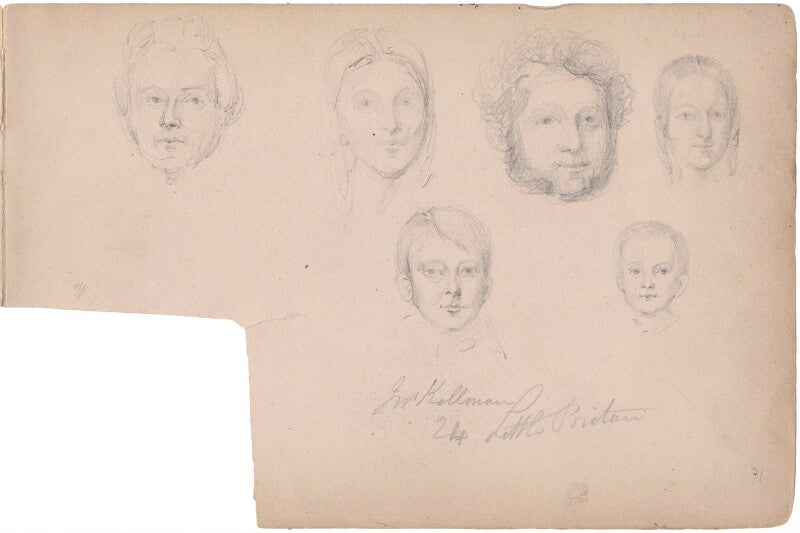 Jno Kellman
24 Little Britain
71